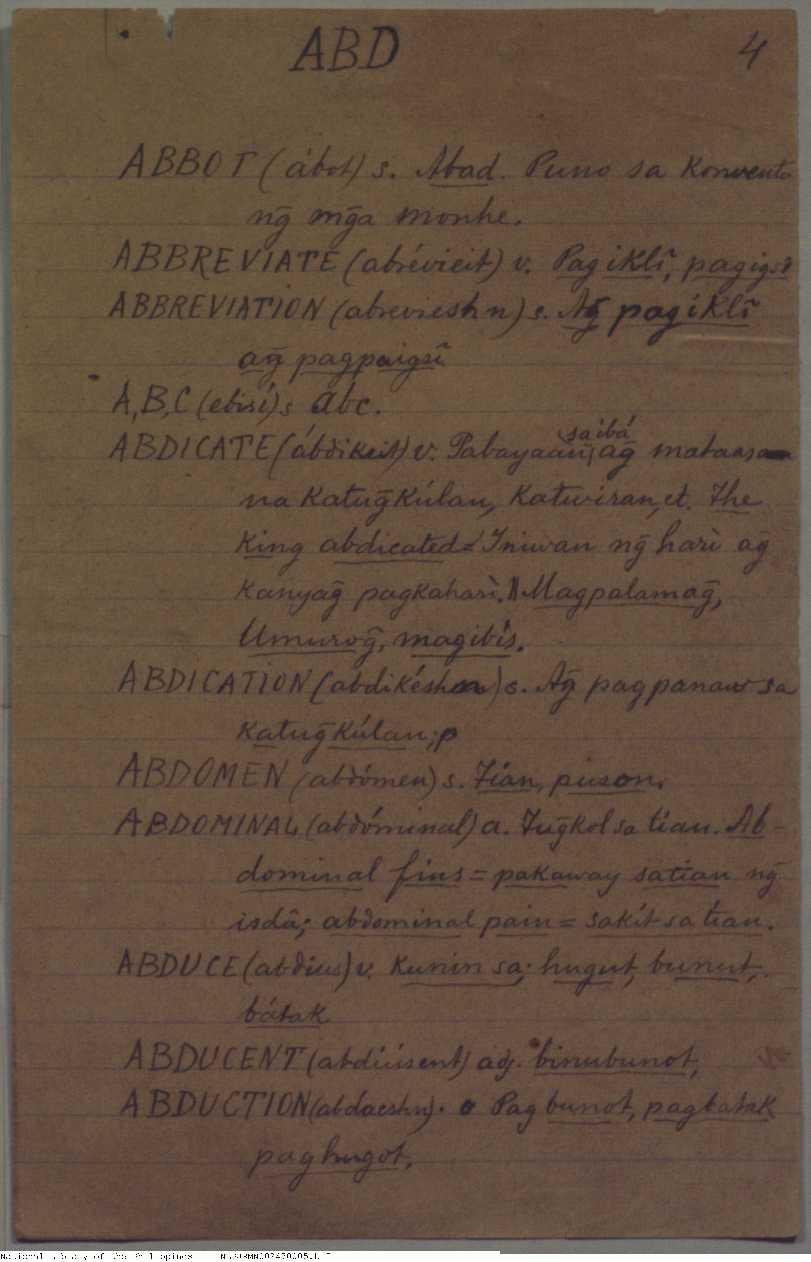 ABD 4
ABBOT (ábot) s. Abad. Puno sa Konvento
ng̃ mg̃a monhe.
ABBREVIATE (abrévieit) v. Pag iklî, pagigsî
ABBREVIATION (abrevieshn) s. Ag̃ pagiklî
ag̃ pagpaigsî
A,B,C (ebisí) s abc.
ABDICATE (ábdikeit) v. Pabayaan, sa ibá ag̃ mataas
na katug̃kúlan, katwiran, et. The
king abdicated = Iniwan ng̃ harì ag̃
kanyag̃ pagkaharì. || Magpalamag̃,
Umurog̃, magibís.
ABDICATION (abdikéshn) s. Ag̃ pagpanaw sa
katug̃kúlan; p
ABDOMEN (abdómen) s. Tian, puson.
ABDOMINAL (abdóminal) a. Tug̃kol sa tian. Ab-
dominal fins = pakaway sa tian ng̃
isdâ; abdominal pain = sakít sa tian.
ABDUCE (abdius) v. Kunin sa; hugut, bunut,
bátak
ABDUCENT (abdiúsent) adj. binubunot,
ABDUCTION (abdacshn). Pagbunot, pagbatak
paghugot.
National Library of the Philippines